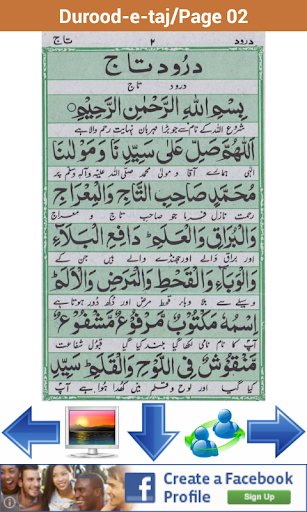 Durood-e-taj/Page 02
درود ۲ تاج
درُود تاج
درود تاج
بِسْمِ اللهِ الرَّحْمٰنِ الرَّحِيْمِ
شروع اللہ کے نام سے جو بڑا مہربان نہایت رحم والا ہے
اَللّٰهُمَّ صَلِّ عَلٰى سَيِّدِنَا وَمَوْلٰنَا
الٰہی ہمارے آقا و مولیٰ محمد صلی اللہ علیہ وآلہ وسلم پر
مُحَمَّدٍ صَاحِبِ التَّاجِ وَالْمِعْرَاجِ
رحمت نازل فرما جو صاحب تاج و معراج
وَالْبُرَاقِ وَالْعَلَمِ دَافِعِ الْبَلَآءِ
اور براق والے اور جھنڈے والے ہیں جن کے
وَالْوَبَآءِ وَالْقَحْطِ وَالْمَرَضِ وَالْاَلَمِ
وسیلے سے بلا وبا قحط مرض اور دکھ دور ہوتا ہے
اِسْمُهٗ مَكْتُوْبٌ مَّرْفُوْعٌ مَّشْفُوْعٌ
آپ کا نام نامی لکھا گیا بلند کیا گیا قبول شفاعت
مَّنْقُوْشٌ فِي اللَّوْحِ وَالْقَلَمِ سَيِّدِ
کیا گیا اور لوح و قلم میں کھدا ہوا ہے آپ
Create a Facebook
Profile
Sign Up